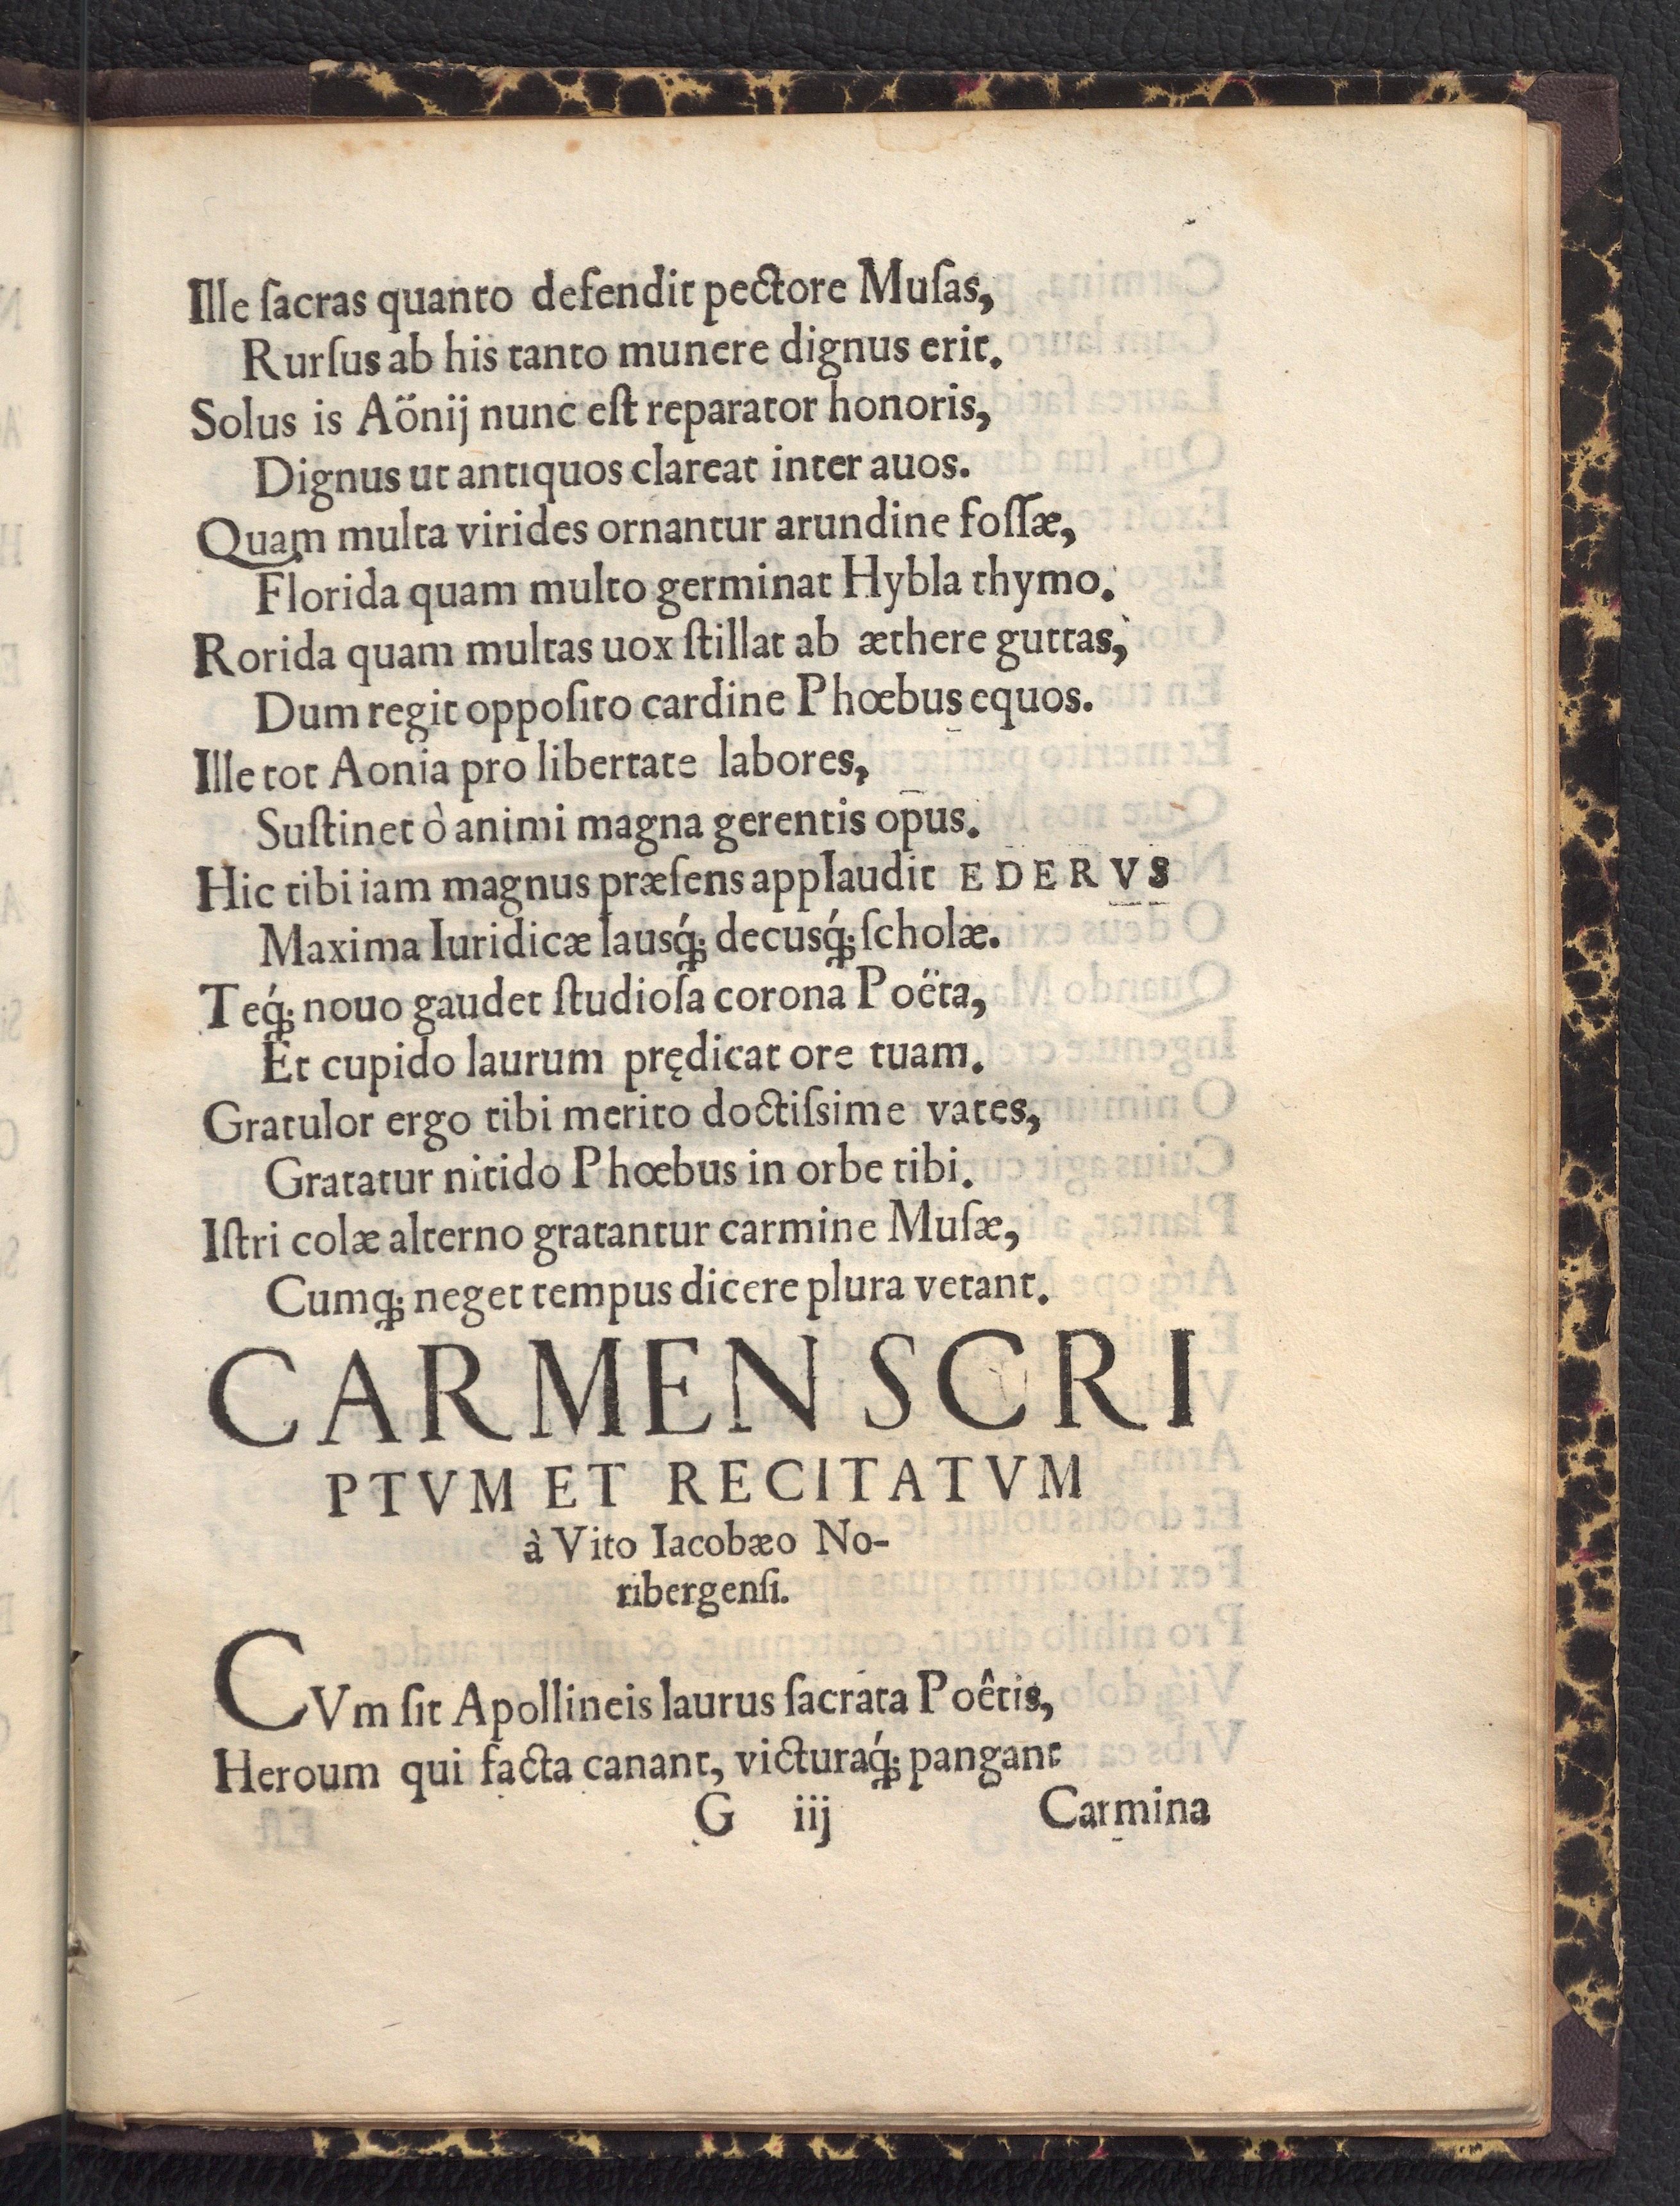 Ille ſacras quanto defendit pectore Muſas,
Rurſus ab his tanto munere dignus erit.
Solus is Aönij nunc eſt reparator honoris,
Dignus ut antiquos clareat inter auos.
Quam multa virides ornantur arundine foſſæ,
Florida quam multo germinat Hybla thymo.
Rorida quam multas uox ſtillat ab æthere guttas,
Dum regit oppoſito cardine Phœbus equos.
Ille tot Aonia pro libertate labores,
Suſtinet ò animi magna gerentis opus.
Hic tibi iam magnus præſens applaudit EDERVS
Maxima Iuridicæ lausq́; decusq́; ſcholæ.
Teq́; nouo gaudet ſtudioſa corona Poëta,
Et cupido laurum prędicat ore tuam.
Gratulor ergo tibi merito doctiſsime vates,
Gratatur nitido Phœbus in orbe tibi.
Iſtri colæ alterno gratantur carmine Muſæ,
Cumq; neget tempus dicere plura vetant.
CARMEN SCRI
PTVM ET RECITATVM
à Vito Iacobæo No-
ribergenſi.
CVm ſit Apollineis laurus ſacrata Poêtis,
Heroum qui facta canant, victuraq́; pangant
G iij Carmina